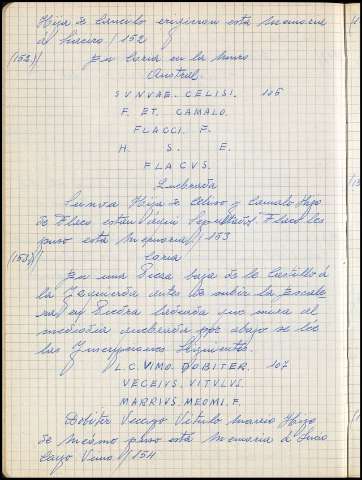 Hija de Canculo erigieron esta Memoria
á Lisciro / 152
(152)// En Coria en la Muro
Austral.
SUNVAE. CELISI. 106
F. ET. CAMALO.
FLACCI. F.
H. S. E.
FLACVS.
Quebrada
Sunva Hija de Celiso y Camalo Hijo
de Flaco estan aqui Sepultados Flaco les
puso esta Memoria / 153
(153)// Coria
En una Pieza baja de le Castillo á
la Izquierda antes de subir la Escale
ra en Piedra labrada que mira al
mediodia quebrada por abajo se lée
las Inscripciones Siguientes.
L. C. VIMO. DOBITER. 107
VECEIVS. VITVLVS.
MARRIVS. MEOMI. F.
Dobiter Veceyo Vitulo Marrio Hijo
de Meomo puso esta Memoria á Lucio
Cayo Vimo // 154